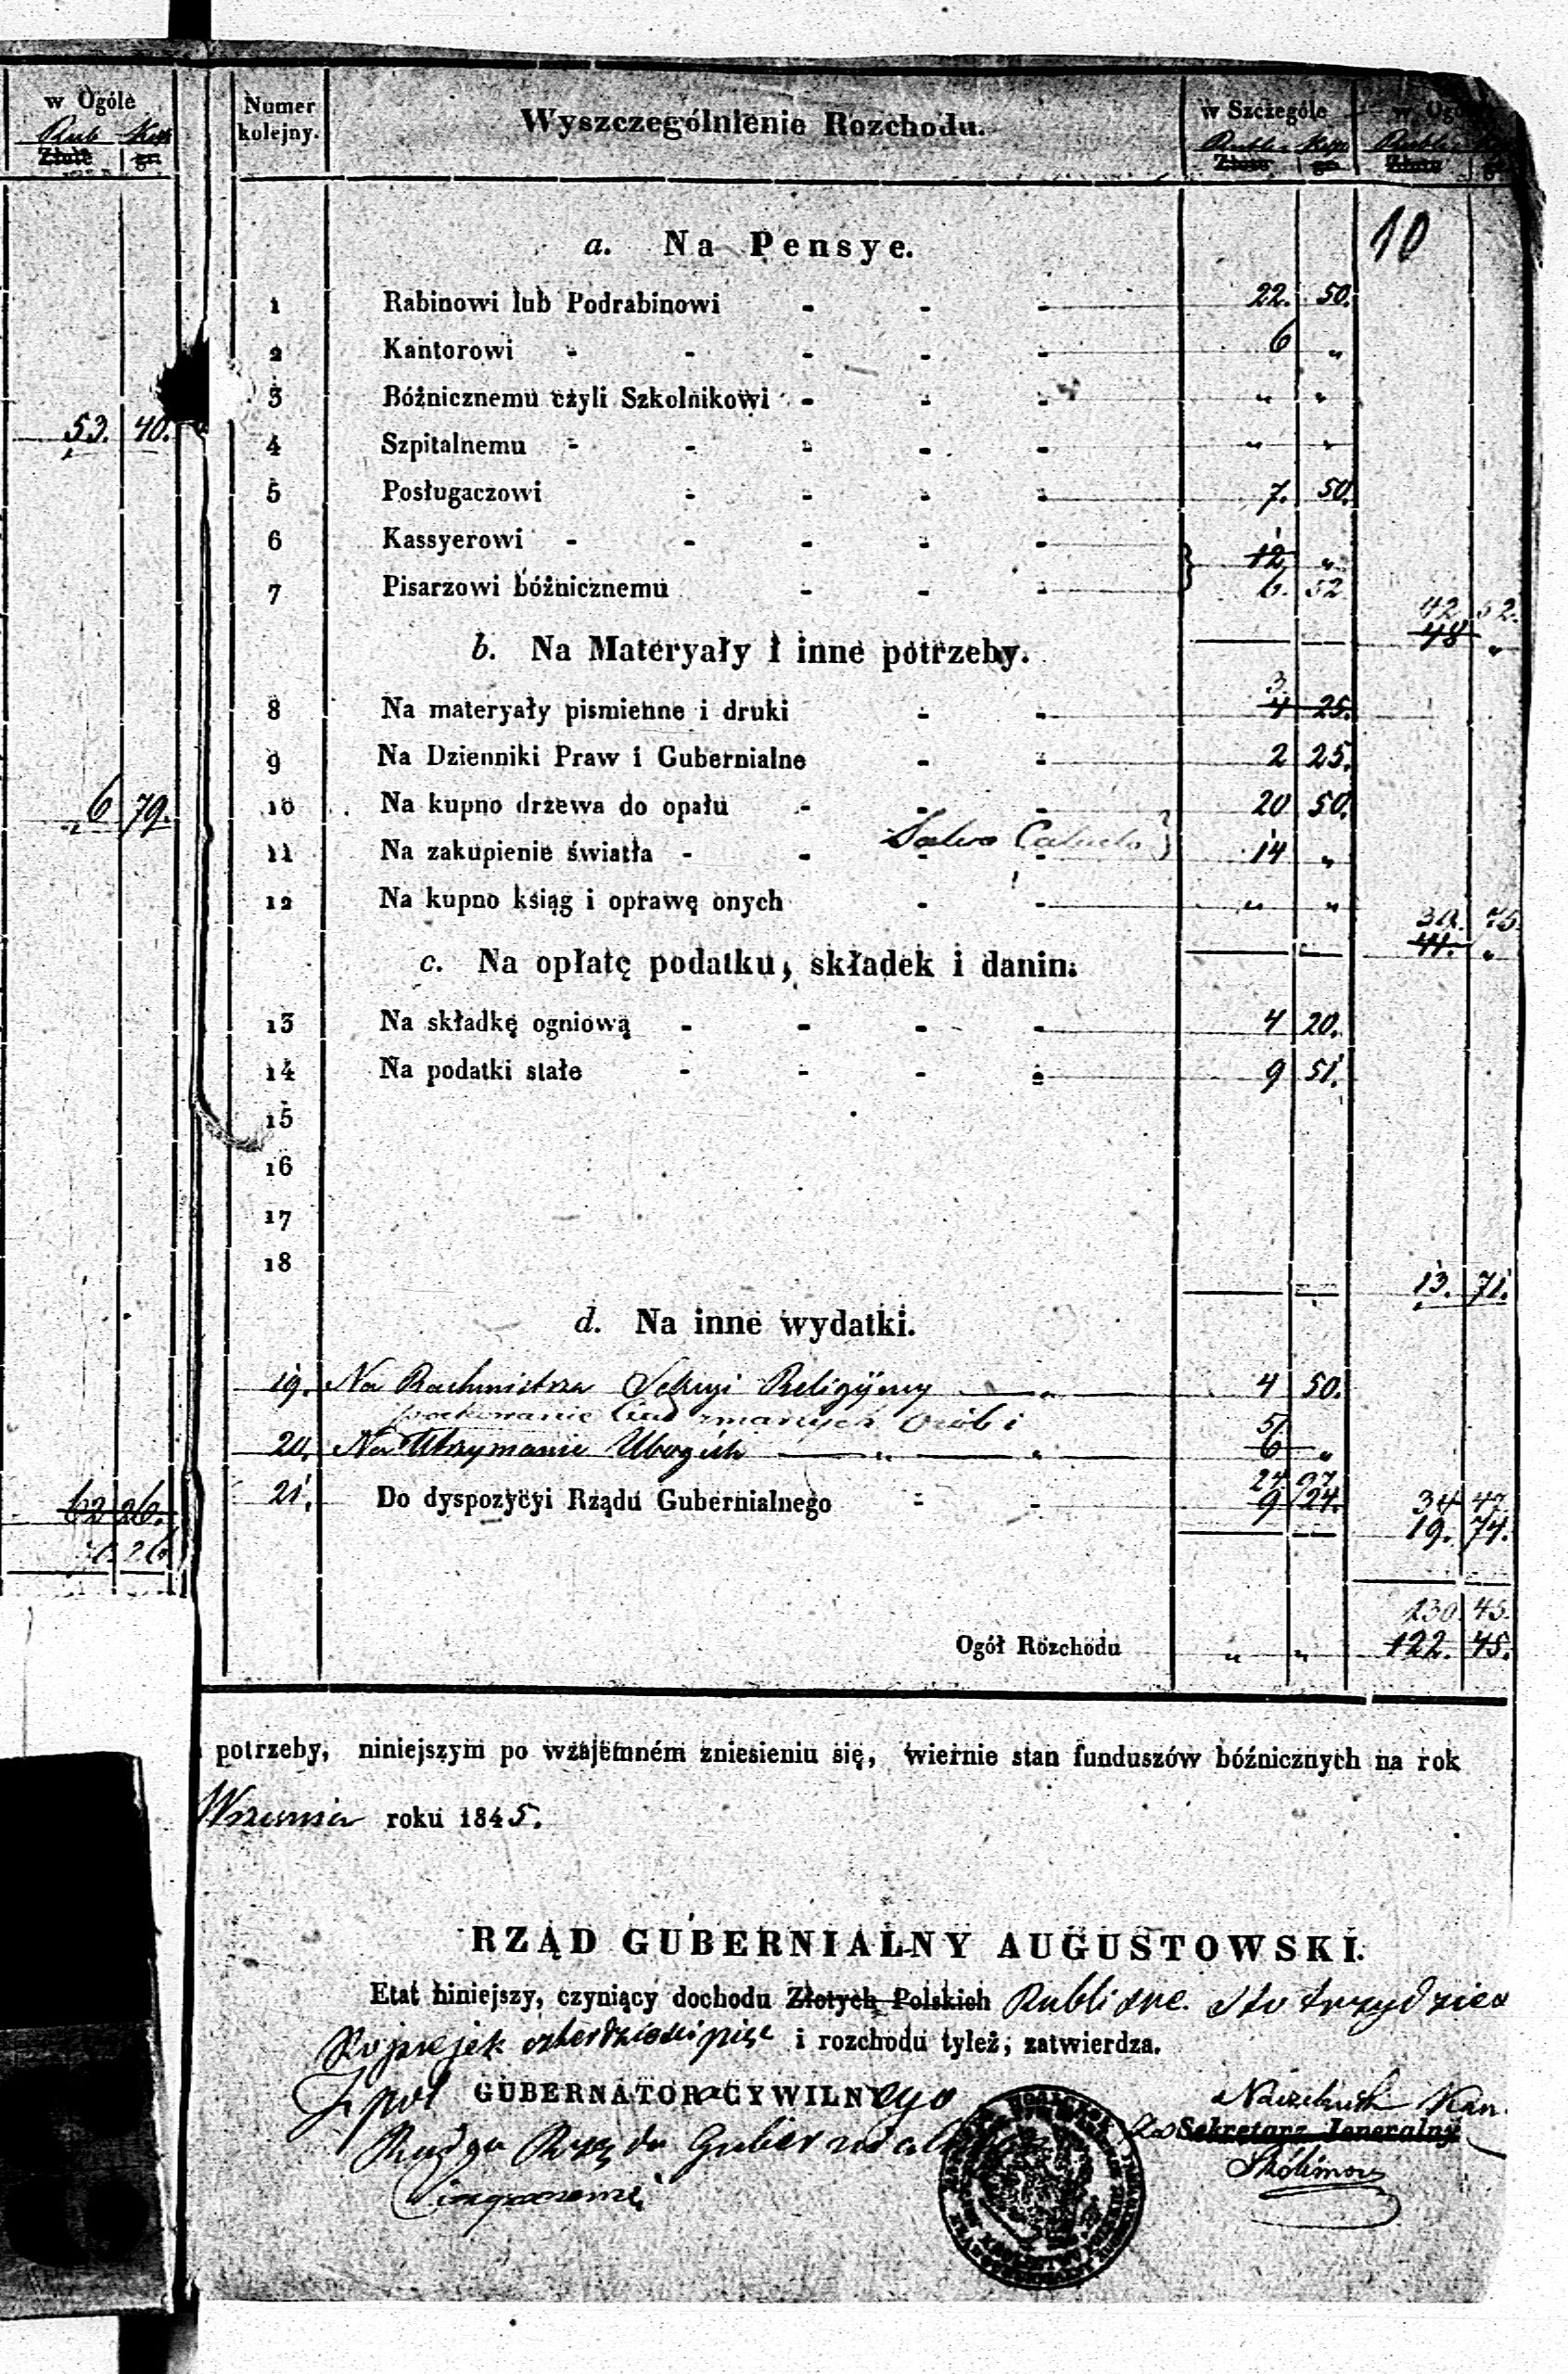 w Ogóle
Rub Kop
Złote gr.
53. 40.
6 79.
62 26.
Numer kolejny.
Wyszczególnienie Rozchodu.
w Szczególe
w Ogóle
Ruble Kop
Ruble
Złote gr.
Złote gr.
10
a. Na Pensye.
1 Rabinowi lub Podrabinowi - - - 22. 50.
2 Kantorowi - - - - - 6 „
3 Bóżnicznemu czyli Szkolnikowi - - - „ „
4 Szpitalnemu - - - - - „ „
5 Posługaczowi - - - - 7. 50.
6 Kassyerowi - - - - - 12 „
7 Pisarzowi bóżnicznemu - - - 6. 52
42 52.
48 „
b. Na Materyały i inne potrzeby.
3.
8 Na materyały pismienne i druki - - 4 25.
9 Na Dzienniki Praw i Gubernialne - - 2 25.
10 Na kupno drzewa do opału - - - 20 50.
Salvo Calculo
11 Na zakupienie światła - - - - 14 „
12 Na kupno ksiąg i oprawę onych - - „ „
39. 75.
41. „
c. Na opłatę podatku, składek i danin.
13 Na składkę ogniową - - - - 4 20.
14 Na podatki stałe - - - - 9 51.
15
16
17
18
13. 71.
d. Na inne wydatki.
19. Na Rachmistrza Sekcyi Religijney 4 50.
pochowanie Ciał zmarłych osób i 5/
20. Na Utrzymanie Ubogich 6 „
24 97
21. Do dyspozycyi Rządu Gubernialnego - - 9 24. 34 47
19. 74.
130. 45.
Ogół Rozchodu „ „ 122. 45.
potrzeby, niniejszym po wzajemném zniesieniu się, wiernie stan funduszów bóżnicznych na rok
Września roku 1845.
RZĄD GUBERNIALNY AUGUSTOWSKI.
Etat niniejszy, czyniący dochodu Złotych Polskich Rubli sre. sto trzydzieś
Kopiejek czterdzieści pięć i rozchodu tyleż, zatwierdza.
GUBERNATORA CYWILNego
Naczelnik Kan.
Radca Rządu Gubernialnego
Za Sekretarz Jeneralny